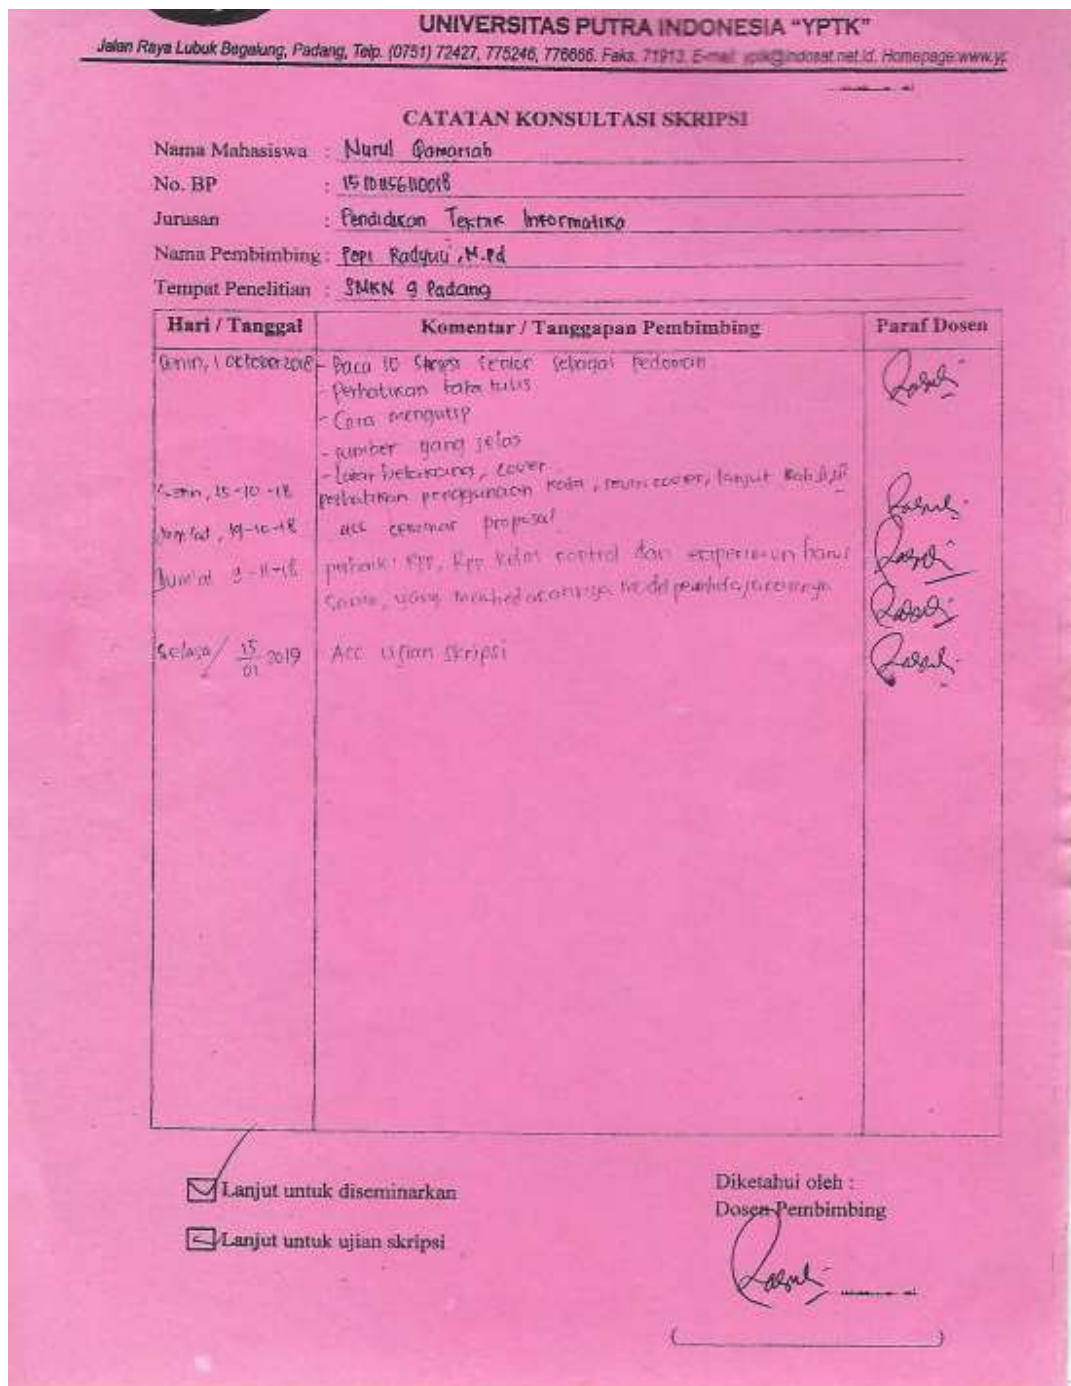 UNIVERSITAS PUTRA INDONESIA "YPTK"
Jalan Raya Lubuk Begalung, Padang, Telp. (0751) 72427, 775246, 776666. Faks. 71913. E-mail yptk@indosat.net.id. Homepage:www.yp
CATATAN KONSULTASI SKRIPSI
Nama Mahasiswa : Nurul Qamariah
No. BP :
Jurusan : Pendidikan Teknik Informatika
Nama Pembimbing : Popi Radyuli, M.Pd
Tempat Penelitian : SMKN 9 Padang
Hari / Tanggal Komentar / Tanggapan Pembimbing Paraf Dosen
Senin, 1 October 2018 - Baca 10 Skripsi senior sebagai Pedoman
- Perhatikan tata tulis
- Cara mengutip
- sumber yang jelas
- Latar belakang, cover
Senin, 15-10-18 perhatikan penggunaan kata, cover, lanjut Bab
Jum'at, 19-10-18 acc seminar proposal
Jum'at 9-11-18 RPP, Rpp kelas control dan eksperimen harus
sama, yang model pembelajarannya
Selasa / 15/01 2019 Acc Ujian Skripsi
Lanjut untuk diseminarkan
Lanjut untuk ujian skripsi
Diketahui oleh :
Dosen Pembimbing